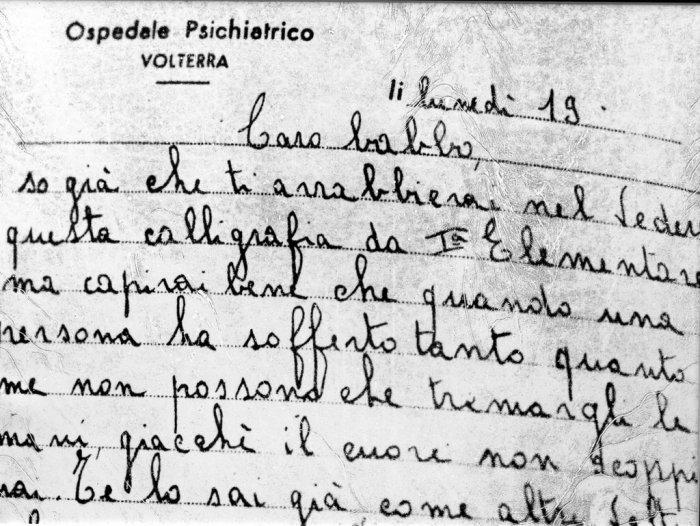 Ospedale Psichiatrico
VOLTERRA
li lunedì 19
Caro babbo,
so già che ti arrabbierai nel veder
questa calligrafia da Iª Elementare
ma capirai bene che quando una
persona ha sofferto tanto quanto
me non possono che tremargli le
mani, giacchè il cuore non scoppi
mai. Te lo sai già come altre